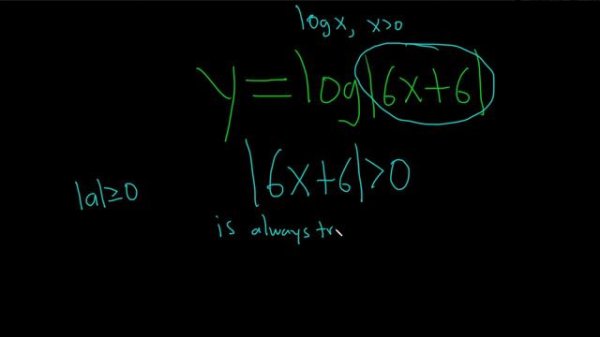 log x, x>0
y = log|6x+6|
|6x+6|>0
|a|≥0
is always tr